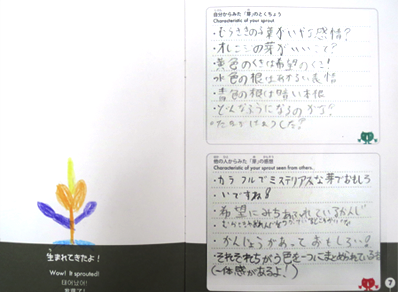 生まれてきたよ!
Wow! It sprouted!
自分からみた「芽」のとくちょう
Characteristic of your sprout
・むらさきの芽がいやな感情?
・オレンジの芽がいいこて?
・黄色のくきは希望のくき!
・水色の根は明るい表情
・青色の根は暗い本性
・どんなふうになるのかな?
他の人からみた「芽」の感想
Characteristic of your sprout seen from others.
・カラフルでミステリアスな芽でおもしろ
・いですね!
・希望にみちあふれているかんじ
・かんじょうがあっておもしろい?
・それぞれちがう色を一つにまとめられている
(一体感があるよ!)
7